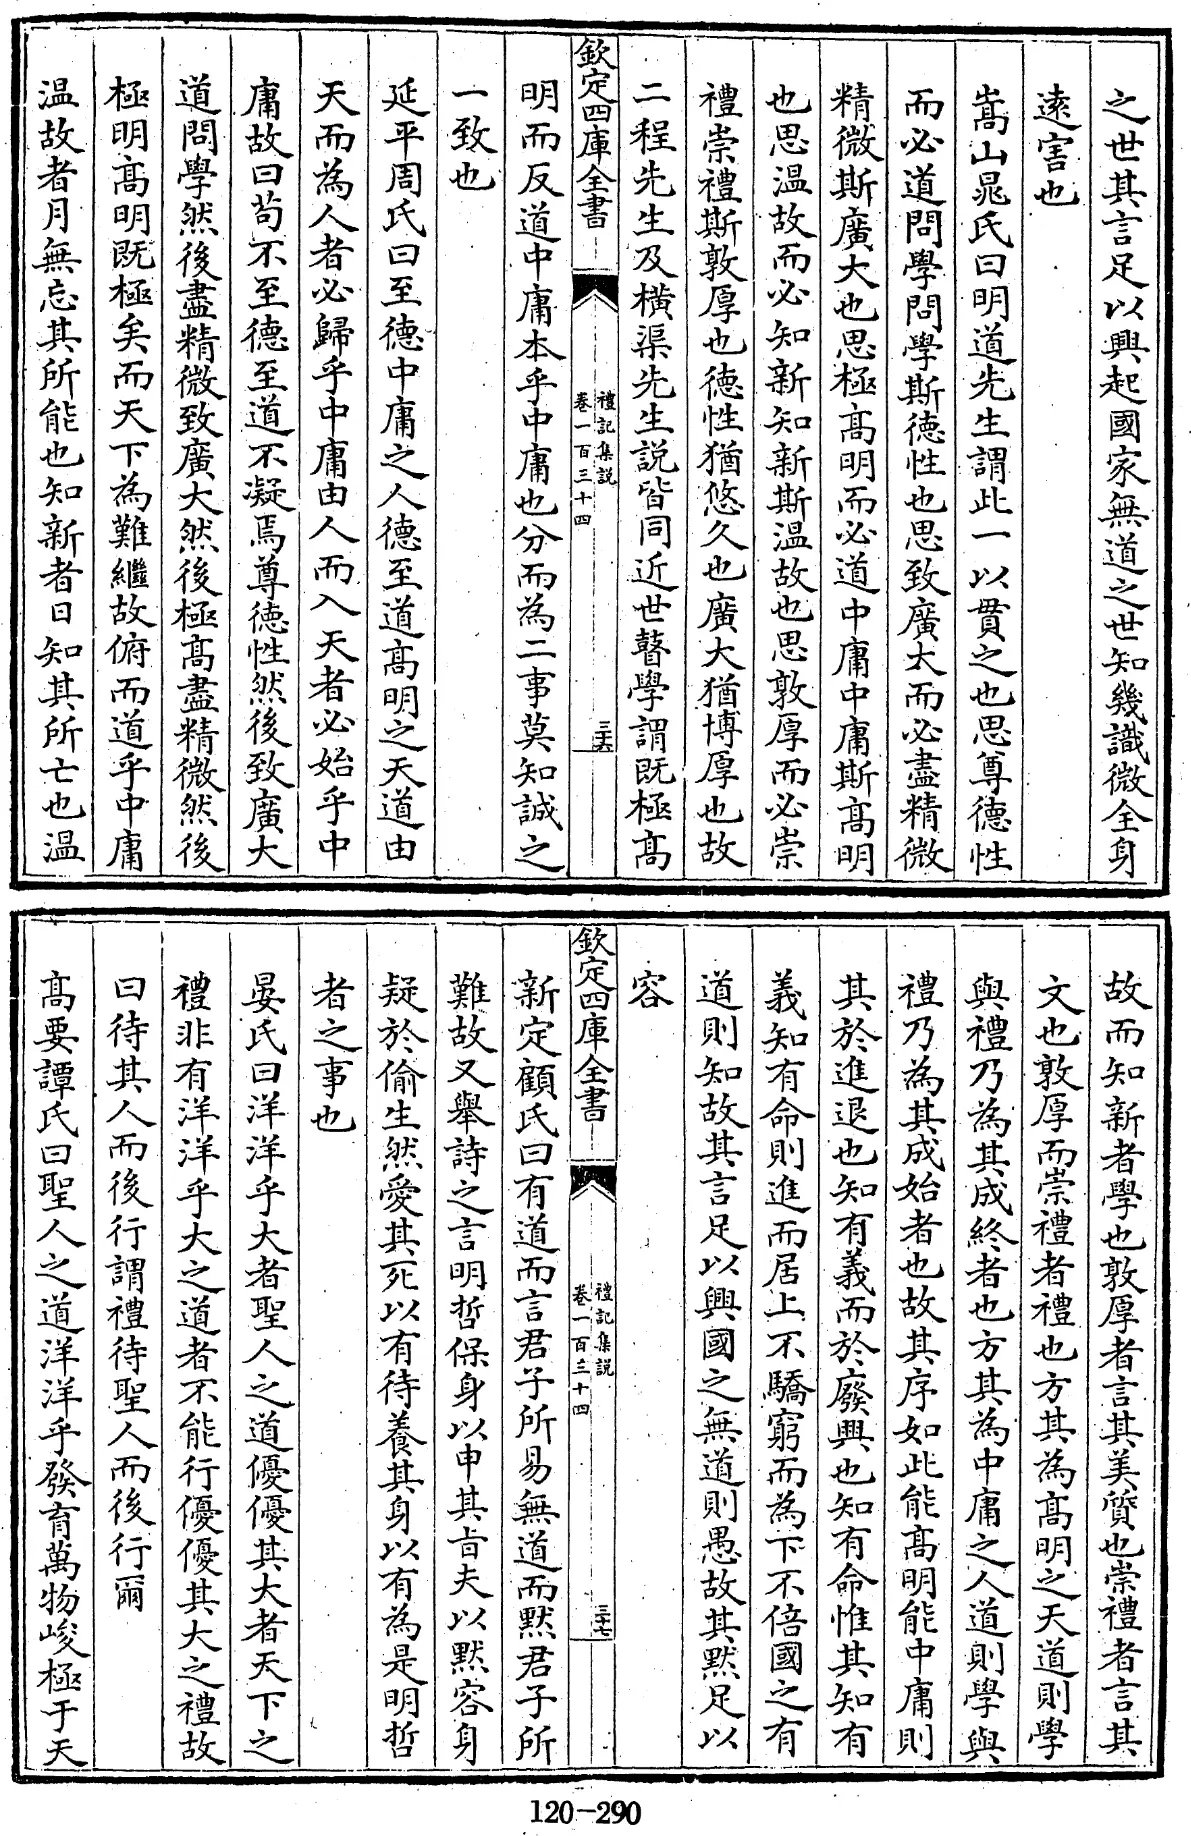 之世其言足以興起國家無道之世知幾識微全身
遠害也
嵩山晁氏曰明道先生謂此一以貫之也思尊德性
而必道問學問學斯德性也思致廣大而必盡精微
精微斯廣大也思極髙明而必道中庸中庸斯髙明
也思温故而必知新知新斯温故也思敦厚而必崇
禮崇禮斯敦厚也德性猶悠久也廣大猶博厚也故
二程先生及橫渠先生説皆同近世瞽學謂既極髙
欽定四庫全書
禮記集説
卷一百三十四
三十六
明而反道中庸本乎中庸也分而為二事莫知誠之
一致也
延平周氏曰至德中庸之人德至道髙明之天道由
天而為人者必歸乎中庸由人而入天者必始乎中
庸故曰茍不至德至道不凝焉尊德性然後致廣大
道問學然後盡精微致廣大然後極髙盡精微然後
極明髙明既極矣而天下為難繼故俯而道乎中庸
温故者月無忘其所能也知新者日知其所亡也温
故而知新者學也敦厚者言其美質也崇禮者言其
文也敦厚而崇禮者禮也方其為髙明之天道則學
與禮乃為其成終者也方其為中庸之人道則學與
禮乃為其成始者也故其序如此能髙明能中庸則
其於進退也知有義而於廢興也知有命惟其知有
義知有命則進而居上不驕窮而為下不倍國之有
道則知故其言足以興國之無道則愚故其黙足以
容
欽定四庫全書
禮記集説
卷一百三十四
三十七
新定顧氏曰有道而言君子所易無道而黙君子所
難故又舉詩之言明哲保身以申其㫖夫以黙容身
疑於偷生然愛其死以有待養其身以有為是明哲
者之事也
晏氏曰洋洋乎大者聖人之道優優其大者天下之
禮非有洋洋乎大之道者不能行優優其大之禮故
曰待其人而後行謂禮待聖人而後行爾
髙要譚氏曰聖人之道洋洋乎發育萬物峻極于天
120-290